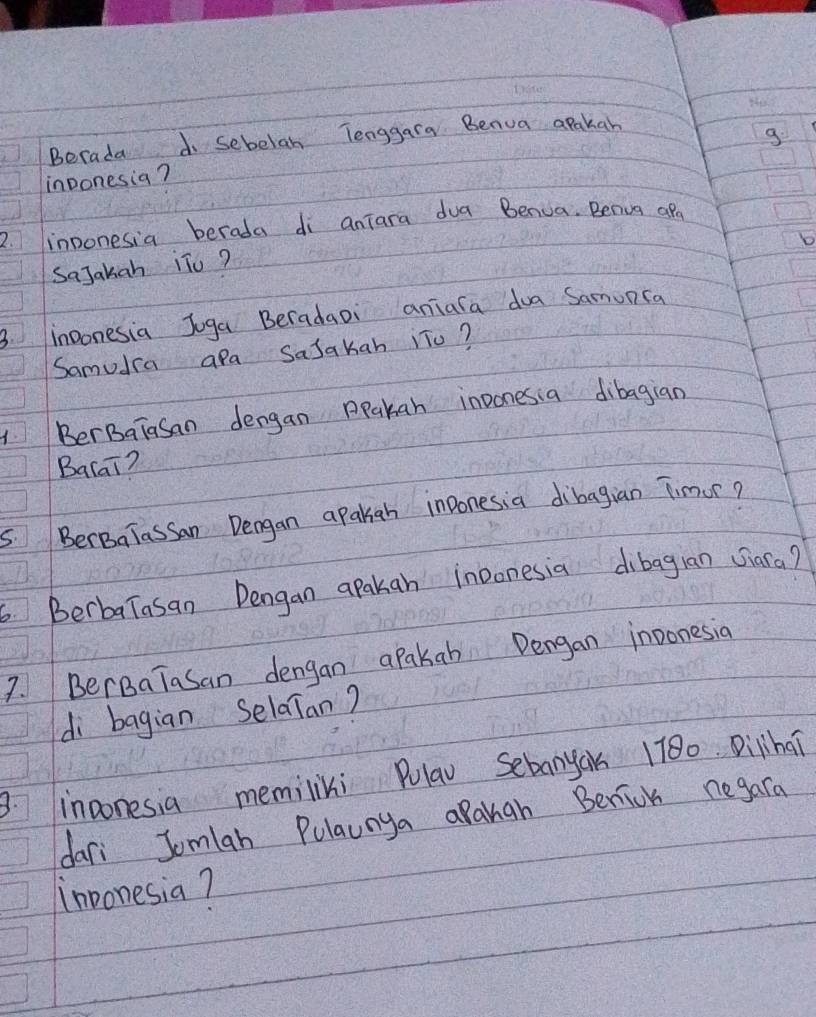 Berada di sebelah Tenggara Benua apakah
inDonesia?
2. inDonesia berada di anTara dua Benua. Benua apa
SaJakah iTu?
3. inDonesia Juga BeradaDi anTara dua SamuDra
Samudra apa SaJakah iTu?
4. BerBaTaSan dengan APakah inDonesia dibagian
BaraT?
5. BerBaTasSan Dengan apakah inDonesia dibagian Timur?
6. BerbaTasan Dengan apakah inDonesia dibagian uTara?
7. BerBaTaSan dengan aPakah Dengan inDonesia
di bagian SelaTan?
8. inDonesia memiliki Pulau Sebanyak 1780. DilihaT
dari Jumlah Pulaunya aPakah BenTuk negara
inDonesia?
9.
b